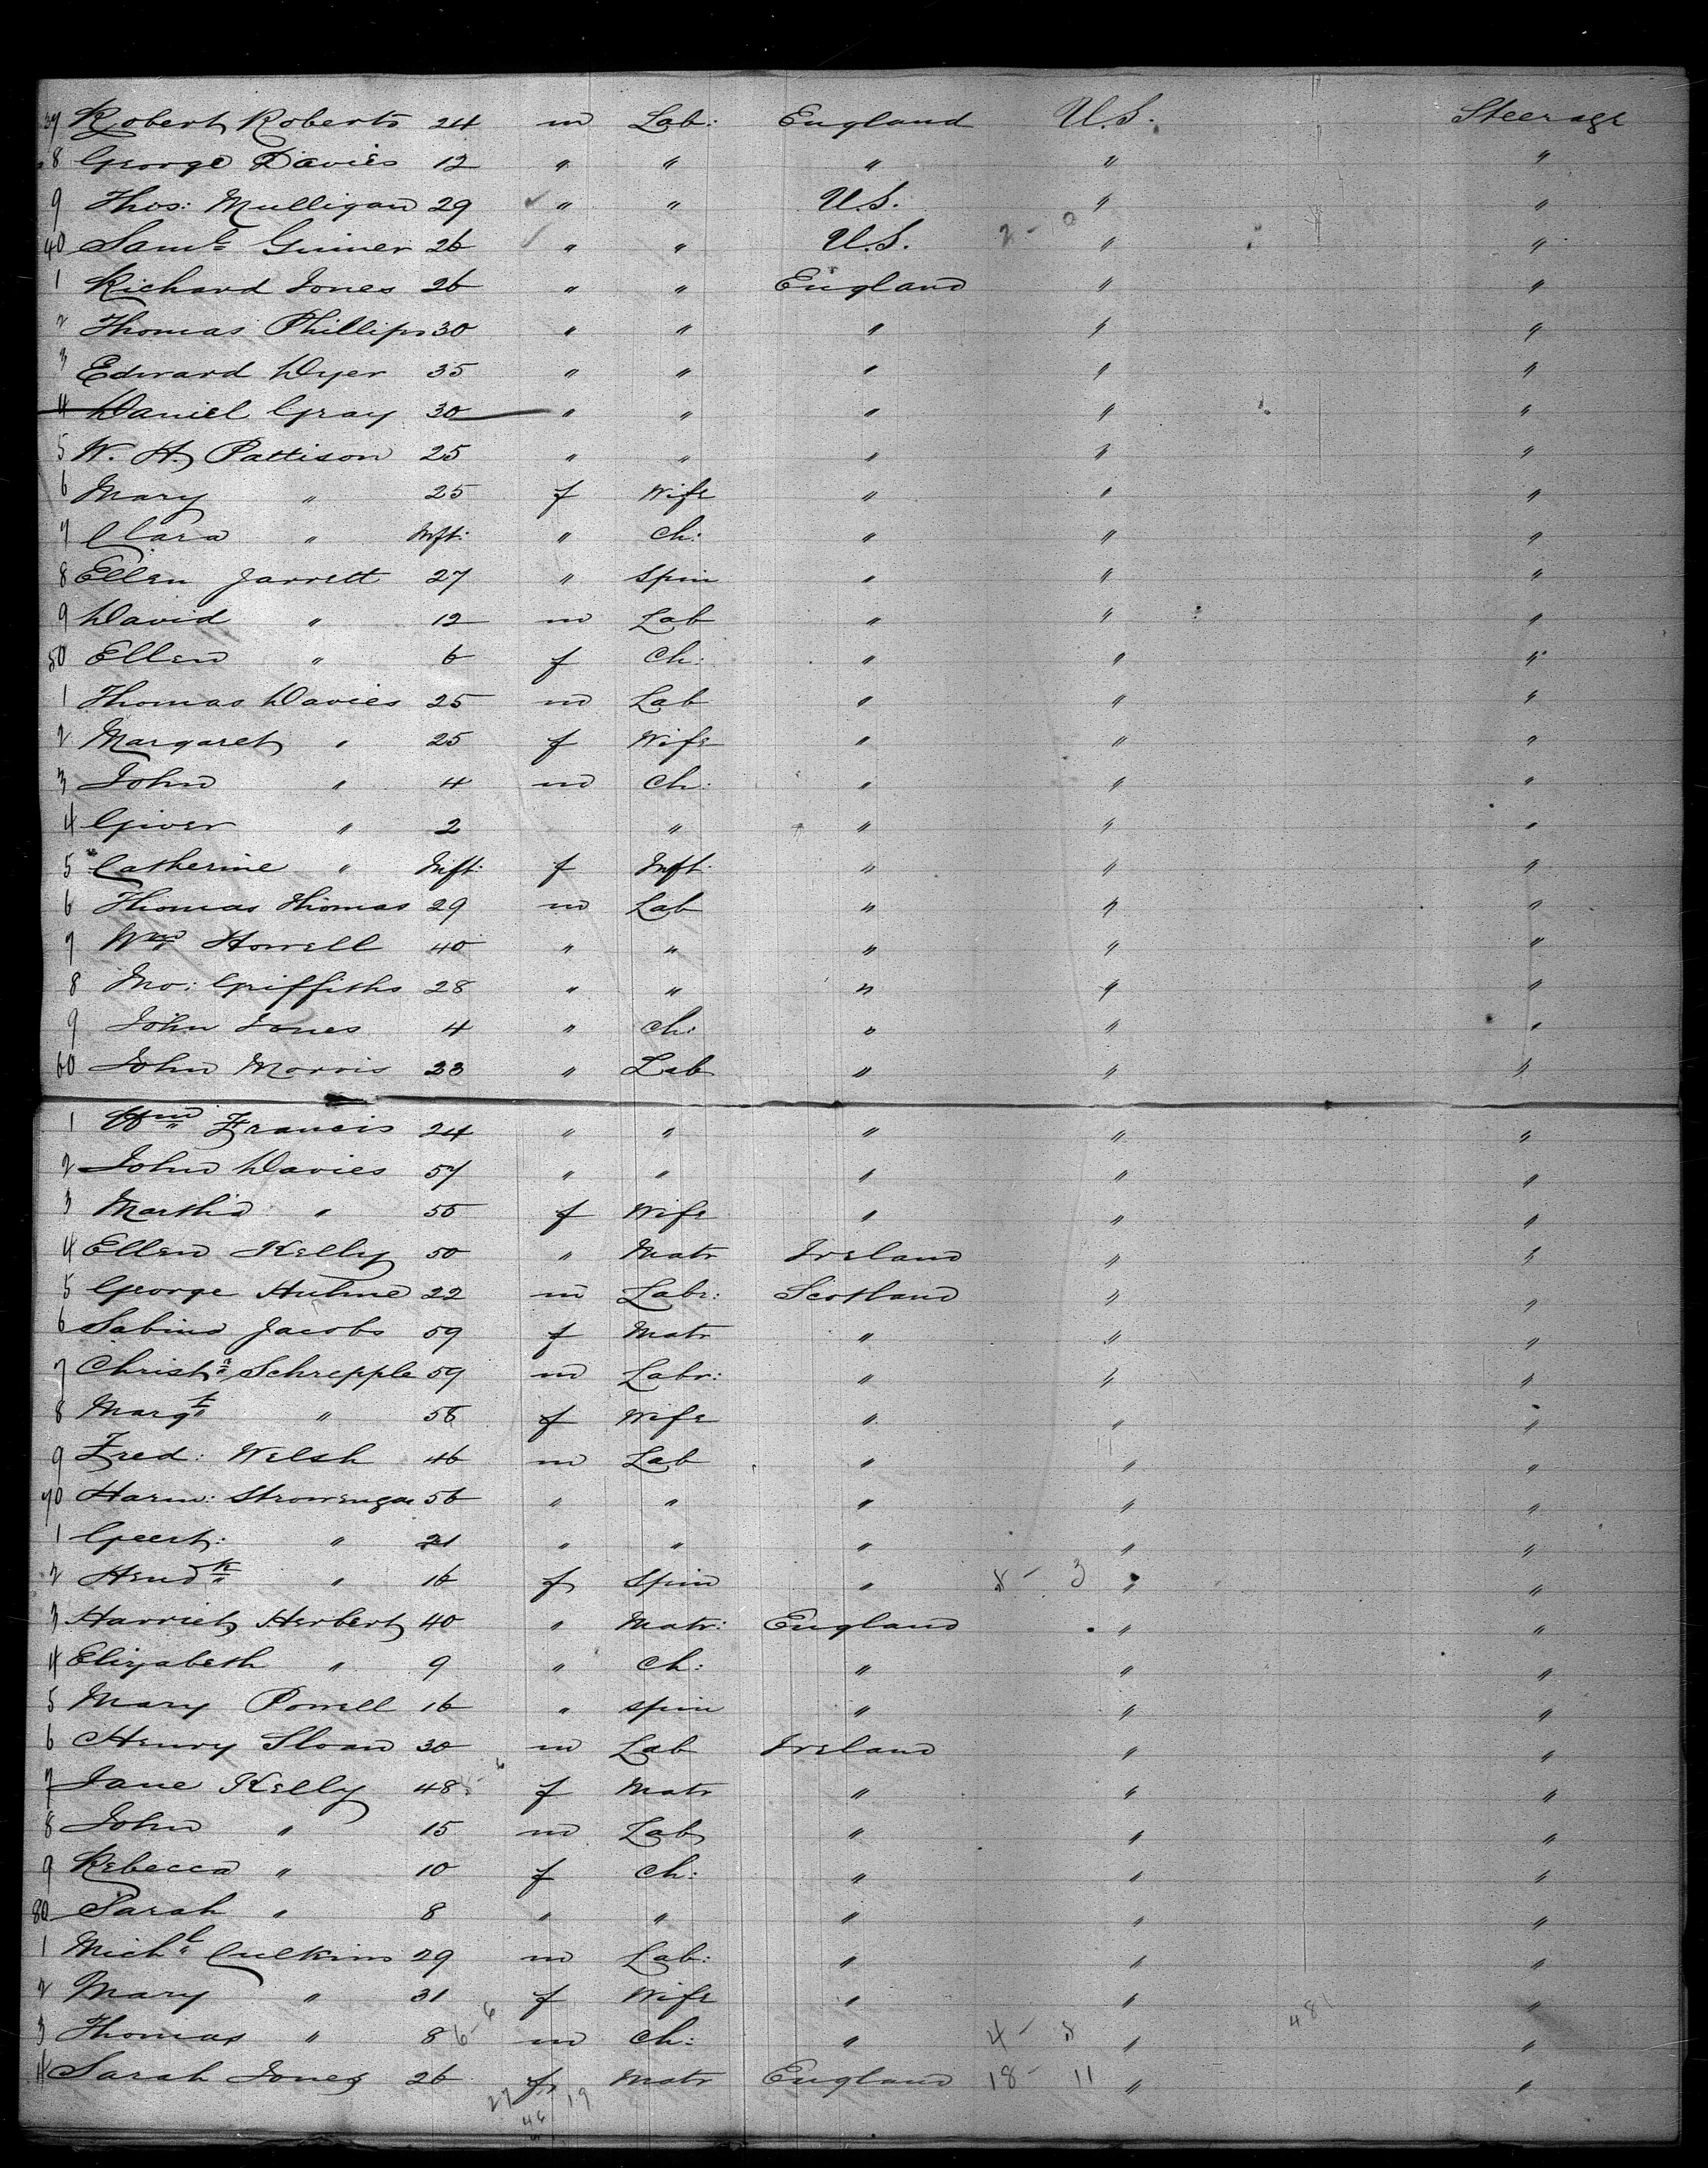 37 Robert Roberts 24 m Lab: England U.S. Steerage
8 George Davies 12 " " " " "
9 Thos: Mulligan 29 " " U.S. " "
40 Saml Guiner 26 " " U.S. 2 - 0 " "
1 Richard Jones 26 " " England " "
2 Thomas Phillips 30 " " " " "
3 Edward Dyer 35 " " " " "
4 Daniel Gray 30 " " " " "
5 W. H. Pattison 25 " " " " "
6 Mary " 25 f Wife " " "
7 Clara " Inft: " Ch: " " "
8 Ellen Jarrett 27 " Spin " " "
9 David " 12 m Lab " " "
50 Ellen " 6 f Ch: " " "
1 Thomas Davies 25 m Lab " " "
2 Margaret " 25 f Wife " " "
3 John " 4 m Ch: " " "
4 Giver " 2 " " " "
5 Catherine " Inft: f Inft: " " "
6 Thomas Thomas 29 m Lab " " "
7 Wm Howell 40 " " " " "
8 Mo: Griffiths 28 " " " " "
9 John Jones 4 " Ch: " " "
60 John Morris 23 " Lab " " "
1 Wm Francis 24 " " " " "
2 John Davies 57 " " " " "
3 Martha " 55 f Wife " " "
4 Ellen Kelly 50 " Matr Ireland " "
5 George Hulme 22 m Labr: Scotland " "
6 Sabina Jacobs 59 f Matr " " "
7 Christn Schrepple 59 m Labr: " " "
8 Margt " 58 f Wife " " "
9 Fred: Welsh 46 m Lab " " "
70 Harm: 56 " " " " "
1 Geert: " 21 " " " " "
2 Hendk " 16 f Spin " 8 - 3 " "
3 Harriet Herbert 40 " Matr: England " "
4 Elizabeth " 9 " Ch: " " "
5 Mary Powell 16 " Spin " " "
6 Henry Sloan 30 m Lab Ireland " "
7 Jane Kelly 48 f Matr " " "
8 John " 15 m Lab " " "
9 Rebecca " 10 f Ch: " " "
80 Sarah " 8 " " " " "
1 Michl Culkins 29 m Lab: " " "
2 Mary " 31 f Wife " " "
3 Thomas " 8 6-6 m Ch: " 4 - 8 " 481 "
4 Sarah Jones 26 f Matr England 18 - 11 " "
27 19
46